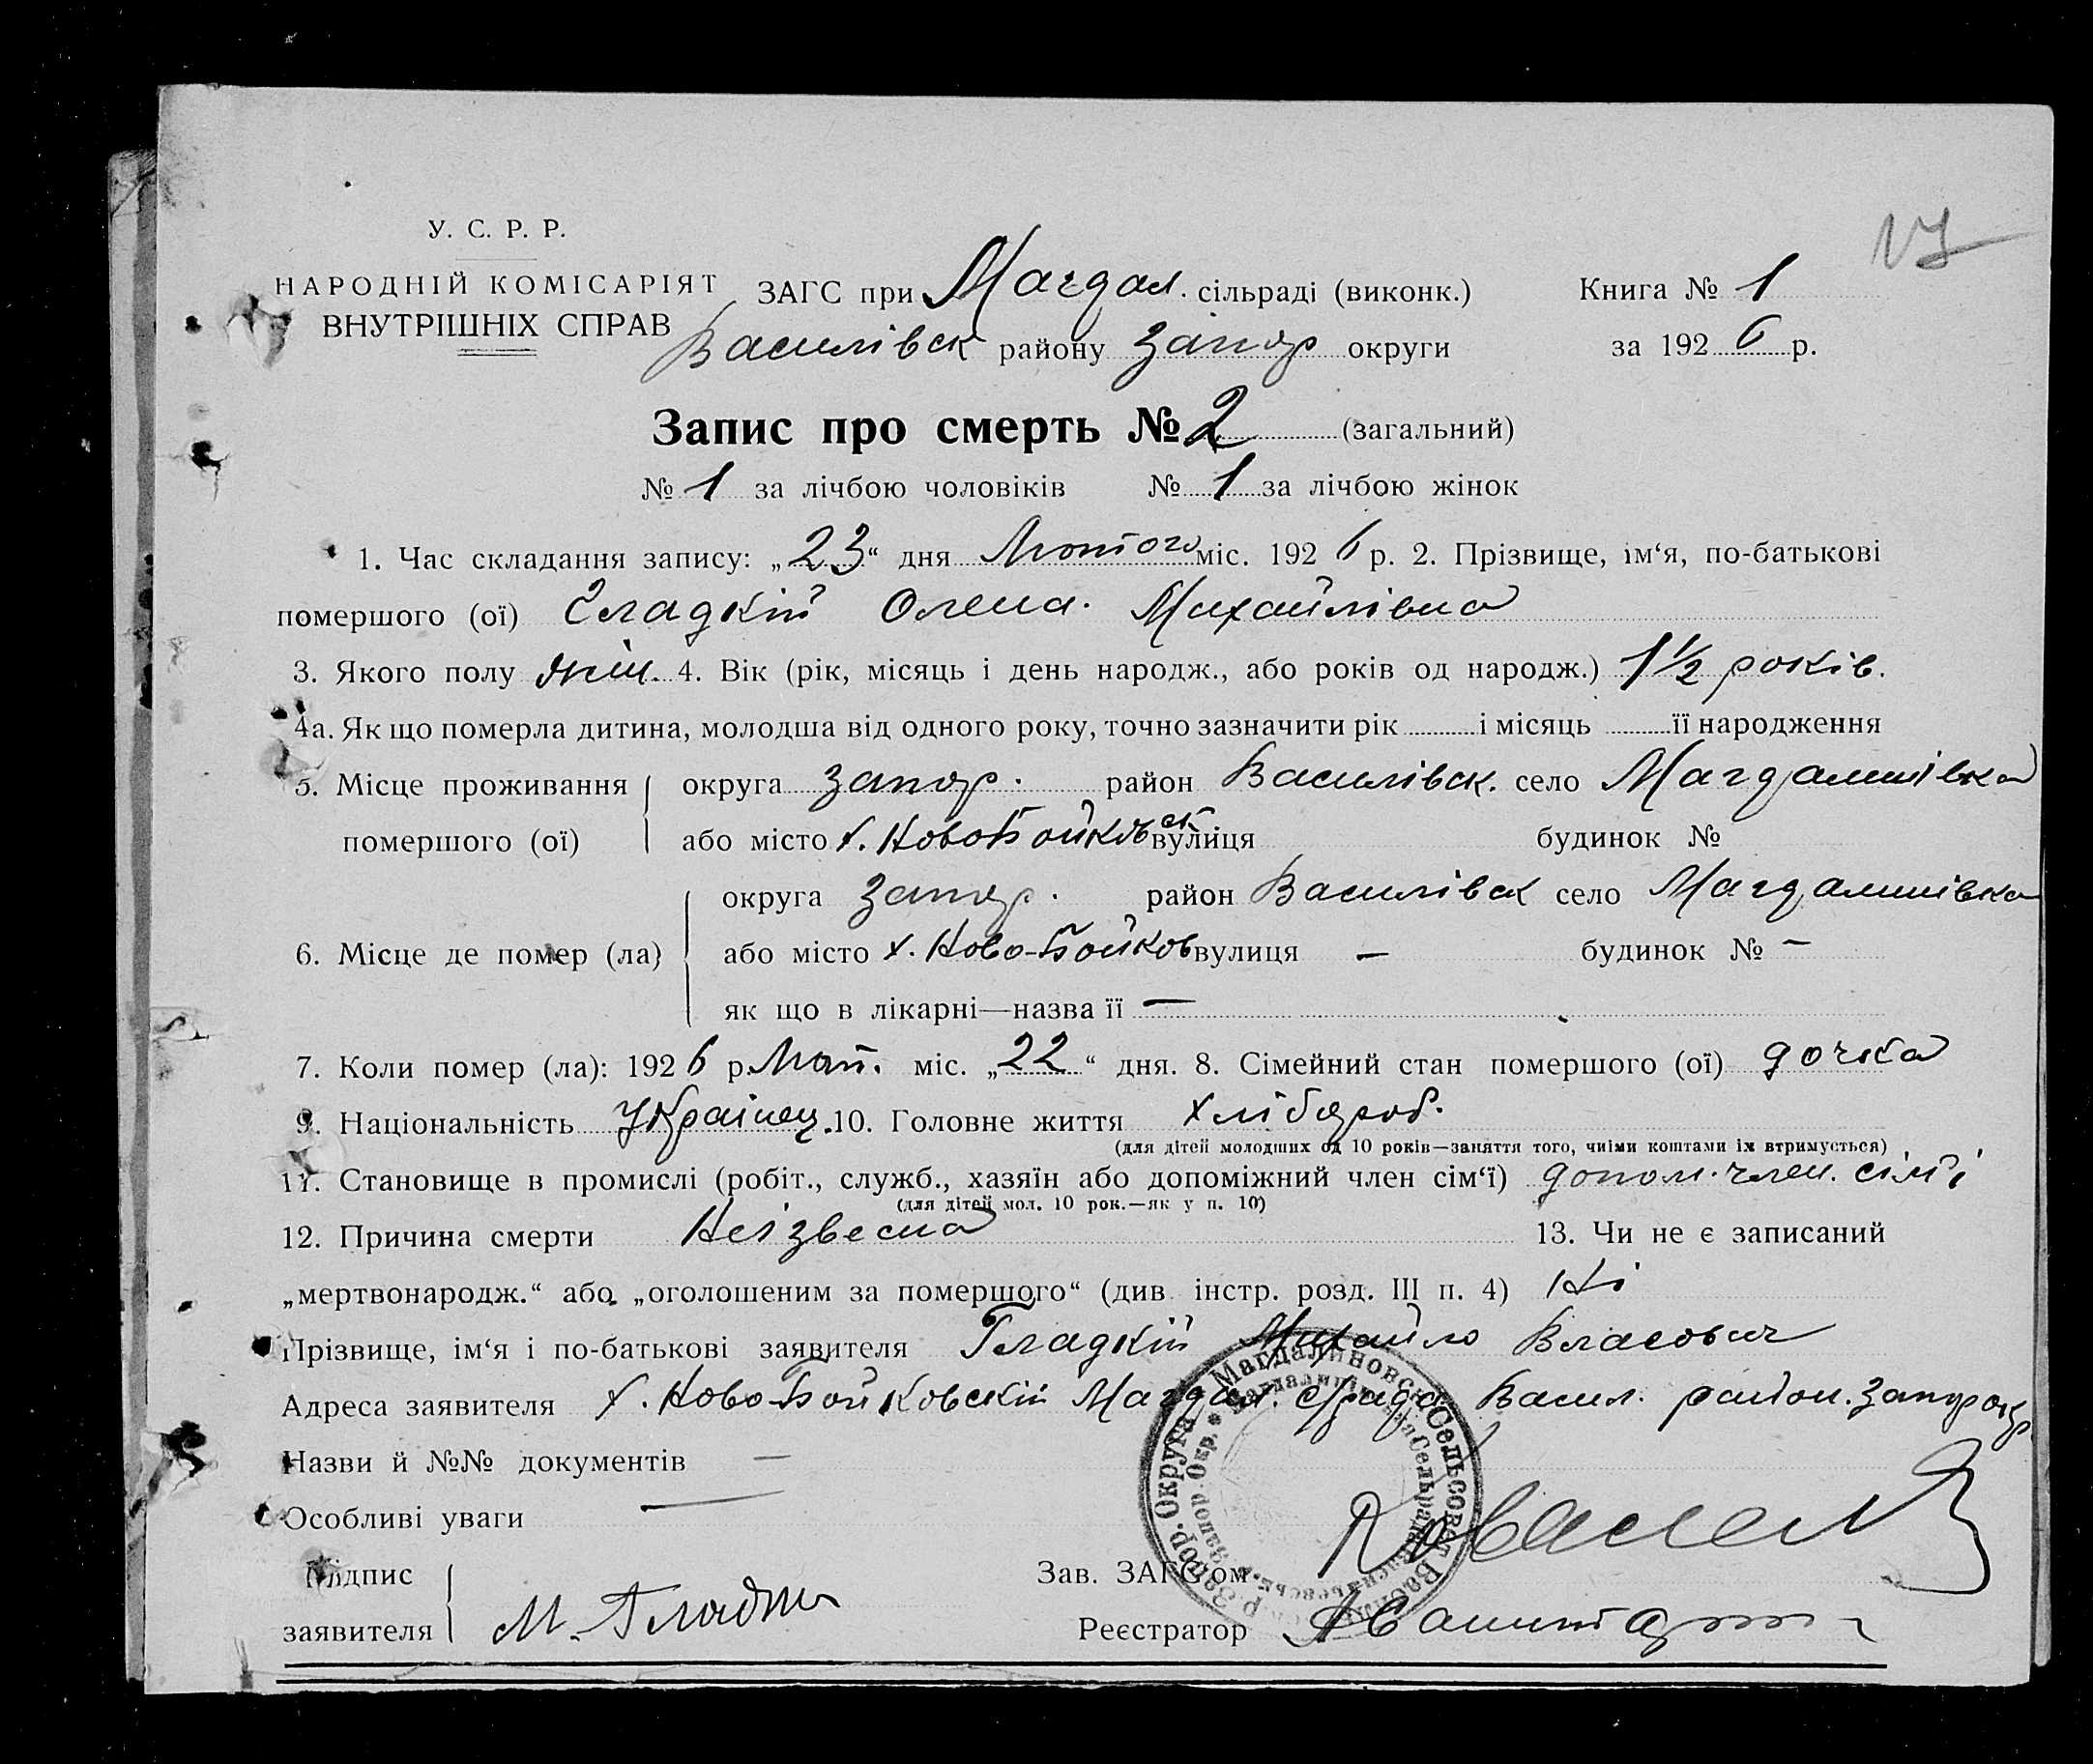 17
У. С. Р. Р.
НАРОДНІЙ КОМІСАРІЯТ
ВНУТРІШНІХ СПРАВ
ЗАГС при Магдал. сільраді (виконк.) Книга № 1
Василівск району Запор округи за 1926 р.
Запис про смерть № 2 (загальний)
№ 1 за лічбою чоловіків № 1 за лічбою жінок
1. Час складання запису: „23“ дня Лютого міс. 1926 р. 2. Прізвище, ім‘я, по-батькові
помершого (ої) Гладкій Олена. Михайлівна
3. Якого полу жін. 4. Вік (рік, місяць і день народж., або років од народж.) 1 1/2 років.
4а. Як що померла дитина, молодша від одного року, точно зазначити рік і місяць її народження
5. Місце проживання округа Запор. район Василівск. село Магдалинівка
помершого (ої) або місто х. Ново Бойковск. вулиця будинок №
округа Запор. район Василівск село Магдалинівка
6. Місце де помер (ла) або місто х. Ново-Бойков вулиця — будинок № —
як що в лікарні—назва її —
7. Коли помер (ла): 1926 р. міс. „22“ дня. 8. Сімейний стан помершого (ої) дочка
9. Національність Українец. 10. Головне життя хлібороб.
(для дітей молодших од 10 років—заняття того, чиїми коштами їх втримується)
11. Становище в промислі (робіт., служб., хазяїн або допоміжний член сім‘ї) допом. член. сім'ї
(для дітей мол. 10 рок.—як у п. 10)
12. Причина смерти Неізвесна 13. Чи не є записаний
„мертвонародж.“ або „оголошеним за помершого“ (див. інстр. розд. III п. 4) Ні
Прізвище, ім‘я і по-батькові заявителя Гладкій Михайло Власович
Адреса заявителя х. Ново-Бойковскій Магдал. с/рада Васил. район. Запор окр
Назви й №№ документів —
Особливі уваги —
Підпис
заявителя М. Гладкий
Зав. ЗАГС‘ом Коваленко
Реєстратор
Запор. Округа Магдалиновск. Сельсовет Васил